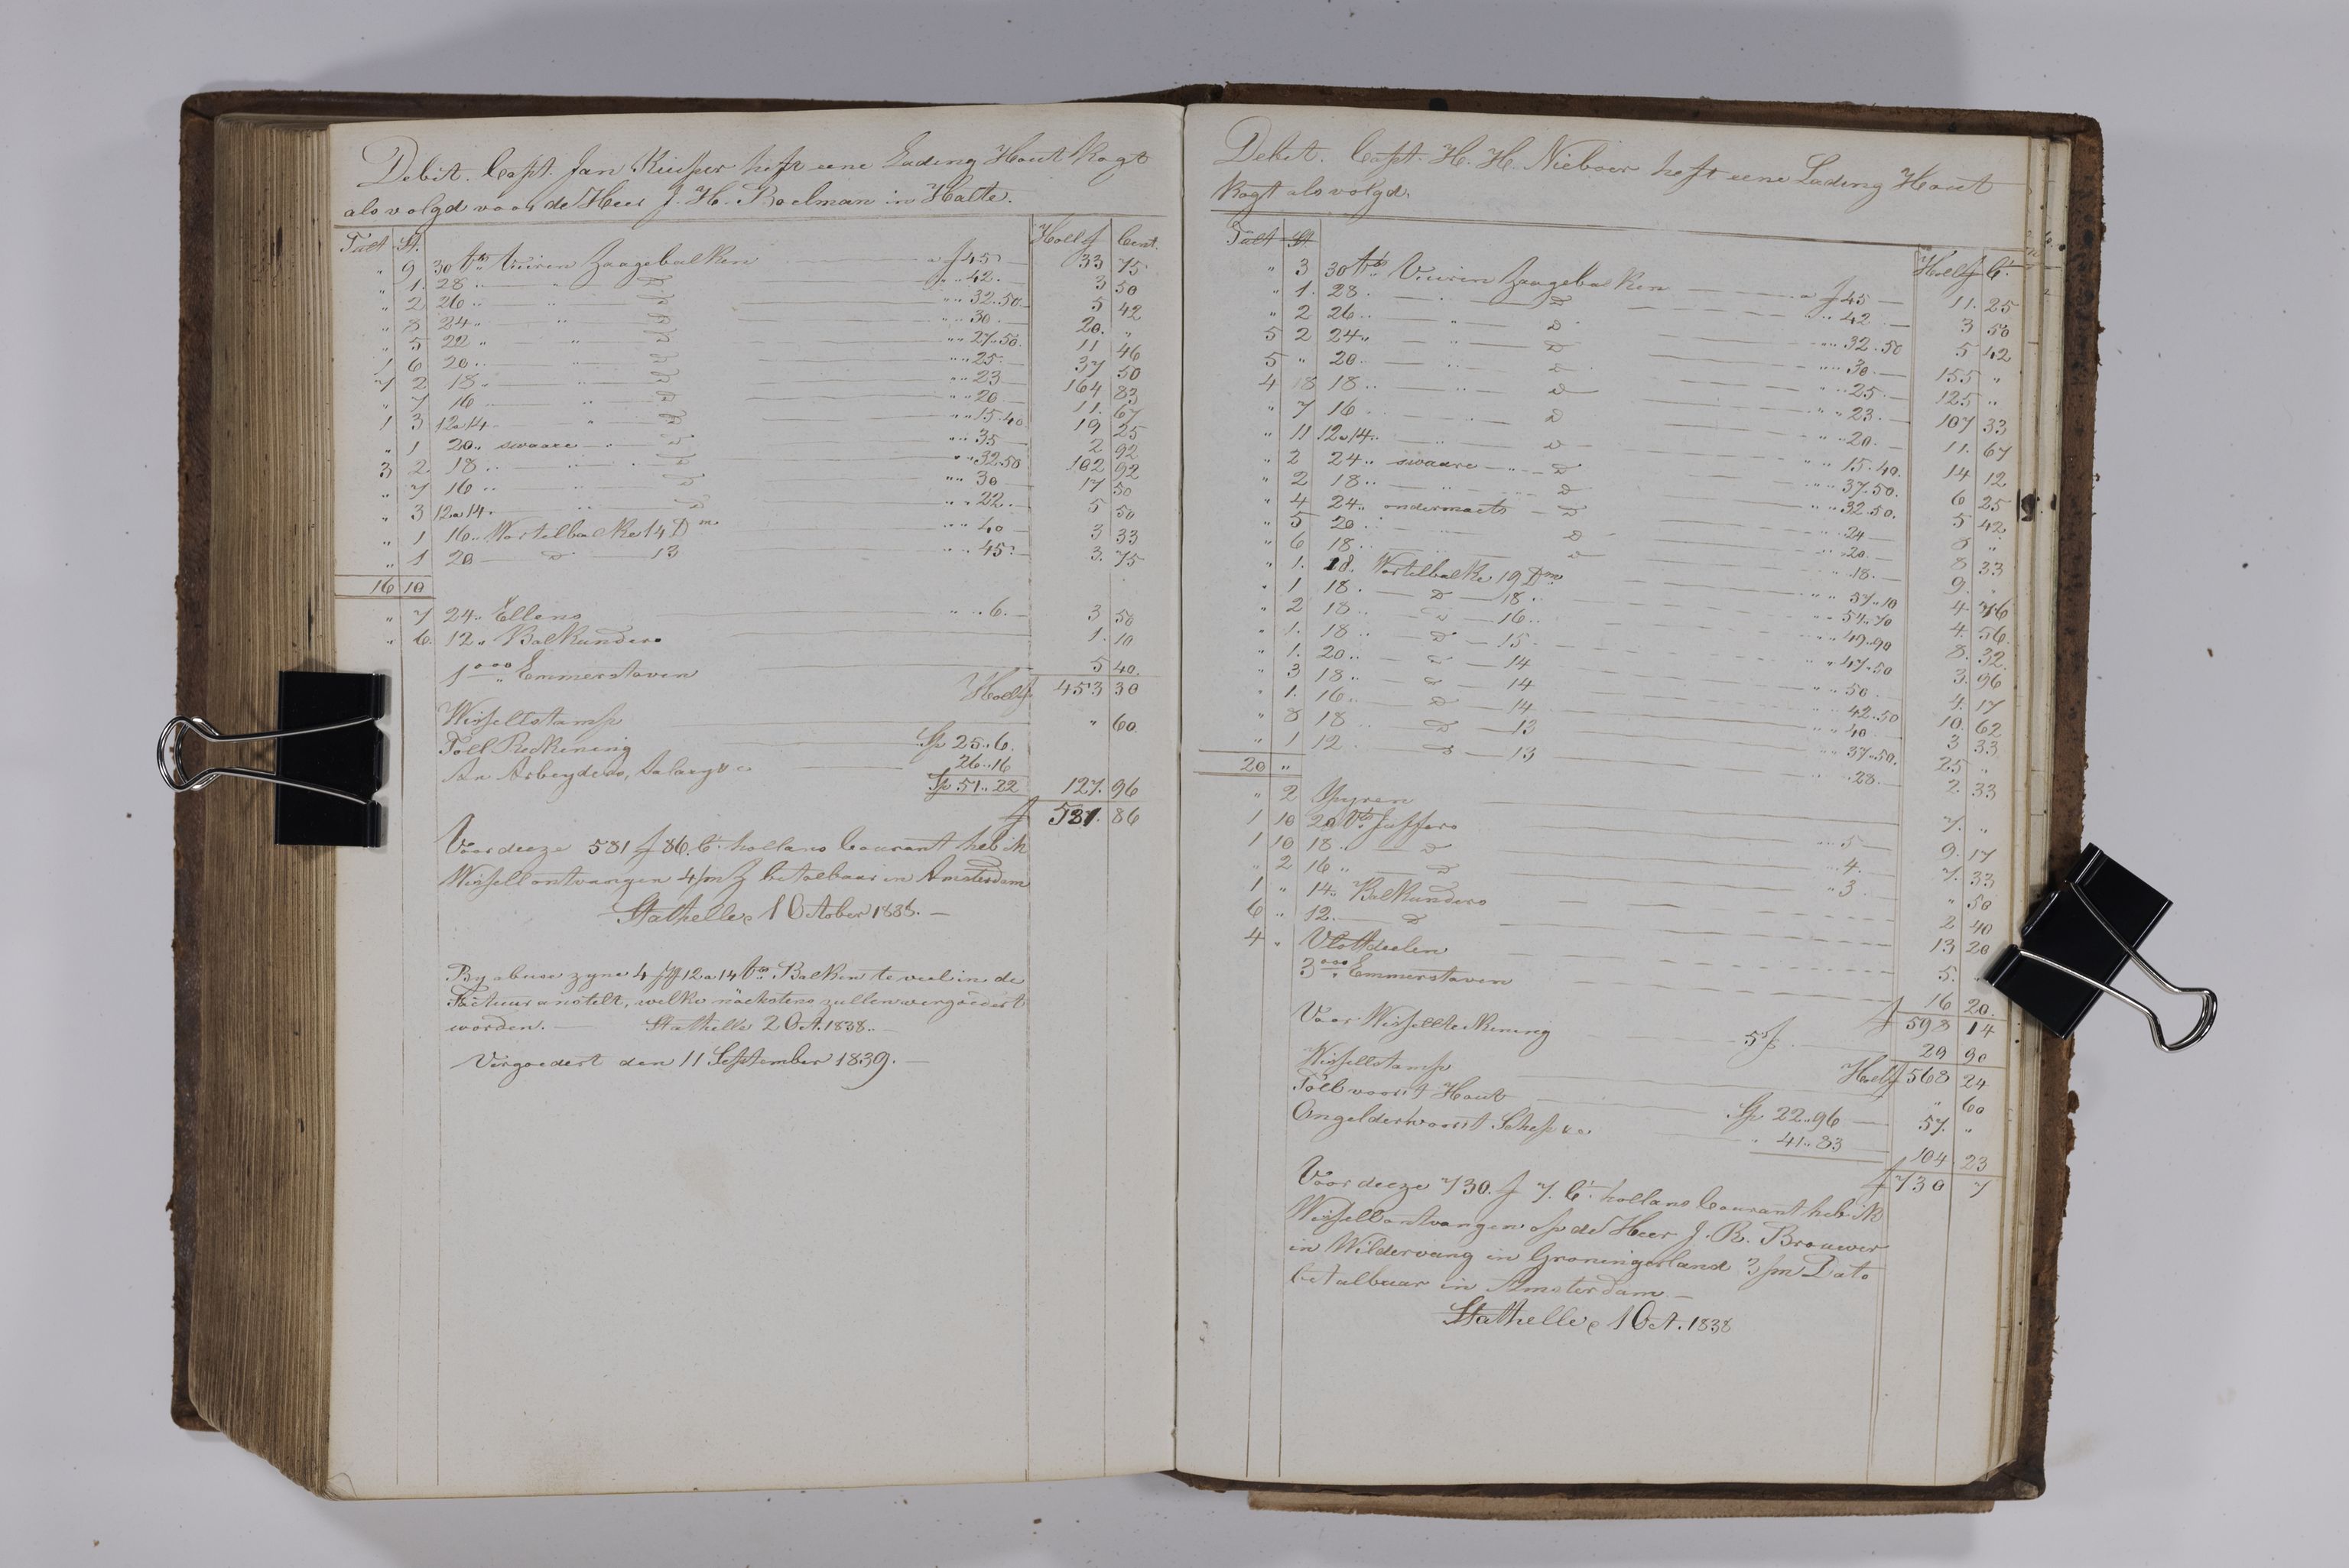 Debit. Capt. Jan Kuiper heft eene Lading Hout kogt
als volgd voor de Heer J. H. Boelman in Halte.
Tult St. Hollƒ Cent.
" 9 30 vt Vuiren Zaagebalken a ƒ 45 33 75
" 1. 28 " " D " " 42. 3 50
" 2 26 " " D " " 32.50 5 42
" 8 24 " " D " " 30 20. "
" 5 22 " " D " " 27.50. 11 46
1 6 20 " " D " " 25 37 50
7 2 18 " " D " " 23 164 83
" 7 16 " D " " 20 11. 67
1 3 12 a 14 " D " " 15.40 19 25
" 1 20 " swaare " D " " 35 2 92
3 2. 18 " " D " " 32.50 102 92
" 7 16 " " D " " 30 17 50
" 3 12 a 14 " " D " " 22. 5 50
" 1 16 " Wortelbalke 14 Dm " " 40 3 33
" 1 20 D 13 " " 45 3. 75
16 10
" 7 24 " Ellens " " 6. 3 50
" 6. 12 " Balkunders 1. 10
1000 Emmerstaven 5 40.
Hollƒ 453 30
Wissellstamp " 60.
Toll Reckening Sp 25.. 6.
An Arbeyders, Salary &c 26.. 16
Sp 51.. 22 127. 96
ƒ 581. 86
Voor deeze 581 ƒ 86. Ct. hollans Courant heb ik
Wissell ontvangen 4/m Z betalbaar in Amsterdam
Stathelle 1 October 1838. —
By abuse zyne 4 St 12 a 14 vt Balken te veel in de
Factuur anstelt, welke nächstens zullen vergoedert
worden. — Stathelle 2 Oct. 1838. —
Vergoedert den 11 September 1839. —
Debet. Capt. H. H. Nieboer heft eene Lading Hout
kogt als volgd.
Tult St Hollƒ Ct.
" 3 30 vt Vuiren Zaagebalken a ƒ 45 11. 25
" 1. 28. " D " " 42 3 50
" 2 26 " " D " " 32.50 5 42
5 2 24 " " D " " 30. 155 "
5 " 20 " " D " " 25 125 "
4 8 18 " " D " " 23. 107 33
" 7 16 " D " " 20. 11. 67
" 11 12 a 14 " " D " " 15.40. 14 12
" 2 24 " swaare " D " " 37.50. 6 25
" 2 18 " " D " " 32.50. 5 42
" 4 24 " ondermaets D " " 24 8 "
" 5 20 " D " " 20 8 33
" 6 18 " D " " 18. 9. "
" 1. 18. Wortelbalke 19 Dm " " 57.10 4 76
" 1 18. D 18 " " 54.70 4. 56
" 2 18 " D 16 " " 49.90 8. 32
" 1. 18 " D 15 " " 47.50 3. 96
" 1. 20 " D 14 " " 50. 4. 17
" 3 18 " D 14 " " 42.50 10. 62
" 1. 16 " D 14 " " 40 3 33
" 8 18 D 13 " " 37.50. 25 "
" 1 12 D 13 " 28. 2. 33
20 "
" 2 Spyren 7. "
1 10 20 vt Juffers " 5 9. 17
1 10 18 " D " 4. 7. 33
" 2 16 " D " 3. " 50
1 " 14 " Balkunders 2 40
6 " 12. D 13 20
4 " Vlottdeelen 5.
3000 Emmerstaven 16 20.
ƒ 598 14
Voor Wissellreckening 5 % 29 90
Hollƒ 568 24
Wissellstamp " 60
Toll voor 't Hout Sp. 22.. 96 57. "
Ongelder voor 't Schep &c " 41.. 83 104. 23
ƒ 730 7
Voor deeze 730. ƒ 7. Ct. hollans Courant heb ik
Wissell ontvangen op de Heer J. R. Brouwer
in Wildervang in Groningerland 3/m Dato
betalbaar in Amsterdam. —
Stathelle 1 Oct. 1838